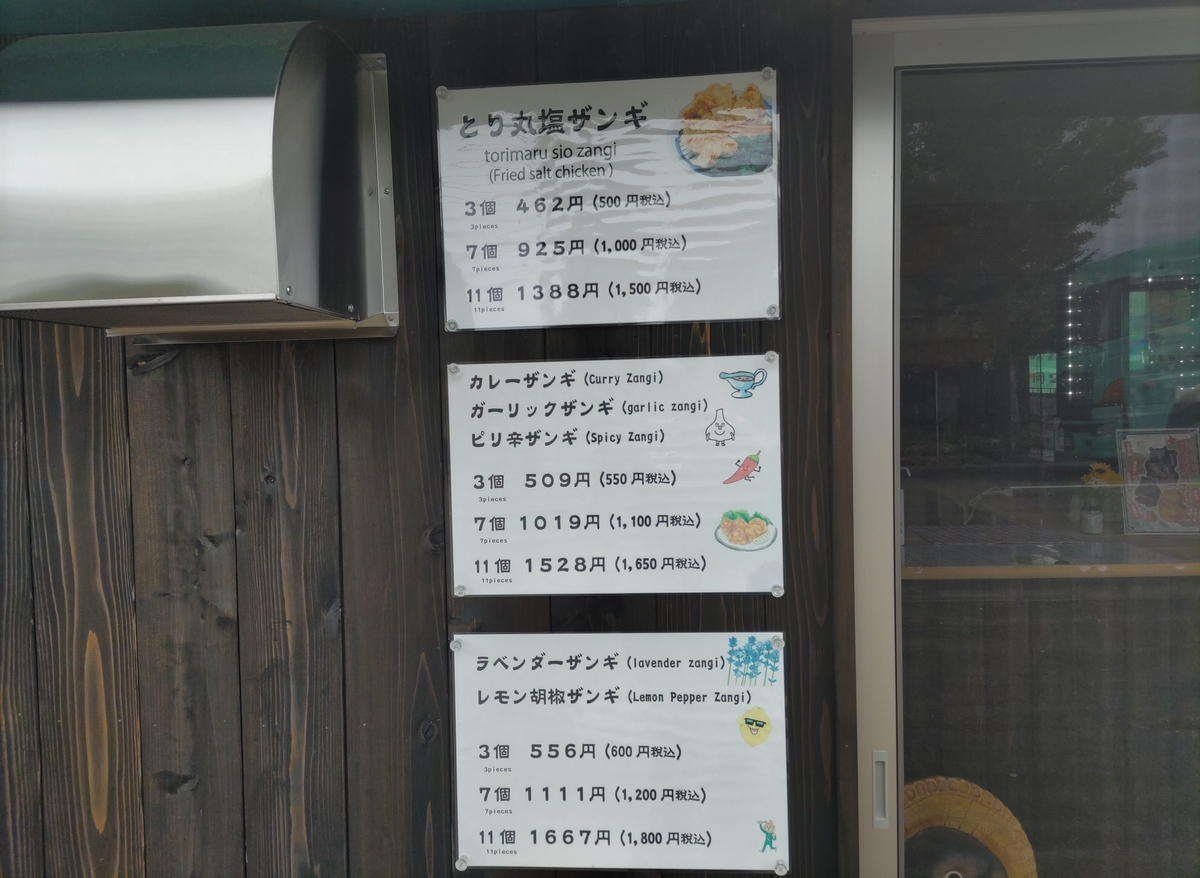 とり丸塩ザンギ
torimaru sio zangi
(Fried salt chicken)
3個 462円 (500円税込)
3pieces
7個 925円 (1,000円税込)
7pieces
11個 1388円 (1,500円税込)
11pieces
カレーザンギ (Curry Zangi)
ガーリックザンギ (garlic zangi)
ピリ辛ザンギ (Spicy Zangi)
3個 509円 (550円税込)
3pieces
7個 1019円 (1,100円税込)
7pieces
11個 1528円 (1,650円税込)
11pieces
ラベンダーザンギ (lavender zangi)
レモン胡椒ザンギ (Lemon Pepper Zangi)
3個 556円 (600円税込)
3pieces
7個 1111円 (1,200円税込)
7pieces
11個 1667円 (1,800円税込)
11pieces